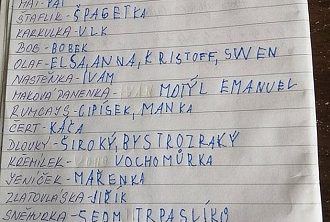 ŠTAFLIK - ŠPAGETKA
KARKULKA - VLK
BOB - BOBEK
OLAF - ELSA, ANNA, KRISTOFF, SWEN
NASTĚNKA - IVAM
MAKOVÁ PANENKA - MOTÝL EMANUEL
RUMCAJS - CIPÍSEK, MANKA
ČERT - KÁČA
DLOUHÝ - ŠIROKÝ, BYSTROZRAKÝ
KŘEMÍLEK - VOCHOMŮRKA
JENÍČEK - MAŘENKA
ZLATOVLÁSKA - JIŘÍK
SNĚHURKA - SEDM TRPASLÍKŮ